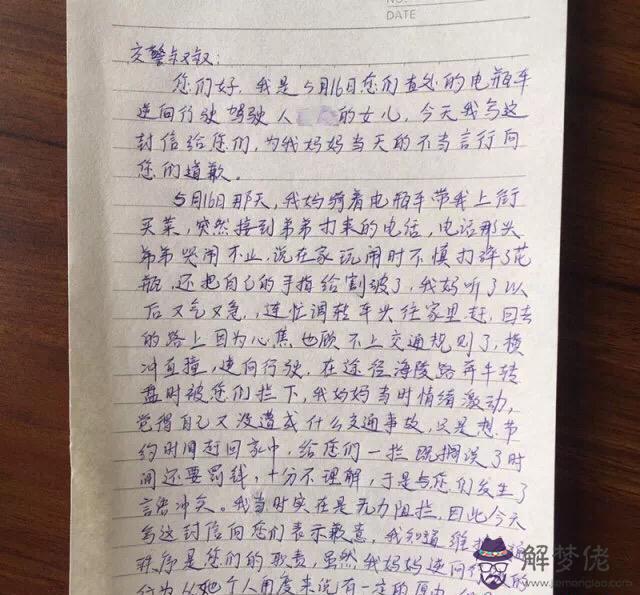 NO.
DATE
交警叔叔：
您们好，我是5月16日您们查处的电瓶车
逆向行驶驾驶人 的女儿，今天我写这
封信给您们，为我妈妈当天的不当言行向
您们道歉。
5月16日那天，我妈骑着电瓶车带我上街
买菜，突然接到弟弟打来的电话，电话那头
弟弟哭闹不止，说在家玩闹时不慎打碎了花
瓶，还把自己的手指给割破了，我妈听了以
后又气又急，连忙调转车头往家里赶，回去
的路上因为心焦也顾不上交通规则了，横
冲直撞，逆向行驶，在途径海陵路奔牛转
盘时被您们拦下，我妈妈当时情绪激动，
觉得自己又没造成什么交通事故，只是想节
约时间赶回家中，给您们一拦既搁误了时
间还要罚钱，十分不理解，于是与您们发生了
言语冲突。我当时实在是无力阻拦，因此今天
写这封信向您们表示歉意，我知道维
秩序是您们的职责，虽然我妈妈逆向行 的
行为从她个人角度来说有一定的原由
解梦佬
jiemenglao.com